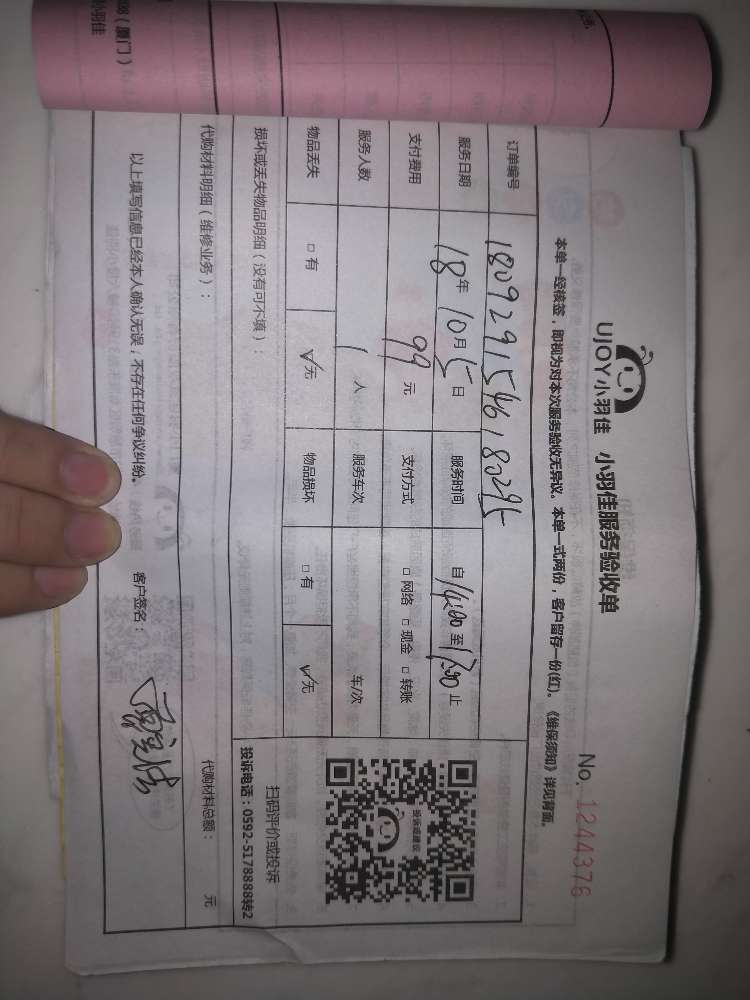 UJOY小羽佳 小羽佳服务验收单
No. 1244376
本单一经核签，即视为对本次服务验收无异议。本单一式两份，客户留存一份(红)。《维保须知》详见背面。
订单编号 180929154618295
服务日期 18年10月5日 服务时间 自14:00至17:00止
支付费用 99元 支付方式 □网络 □现金 □转账
服务人数 1人 服务车次 车/次
物品丢失 □有 ☑无 物品损坏 □有 ☑无
投诉或建议
扫码评价或投诉
投诉电话：0592-5178888转2
损坏或丢失物品明细（没有可不填）：
代购材料明细（维修业务）： 代购材料总额： 元
以上填写信息已经本人确认无误，不存在任何争议纠纷。 客户签名：
（厦门）
小羽佳